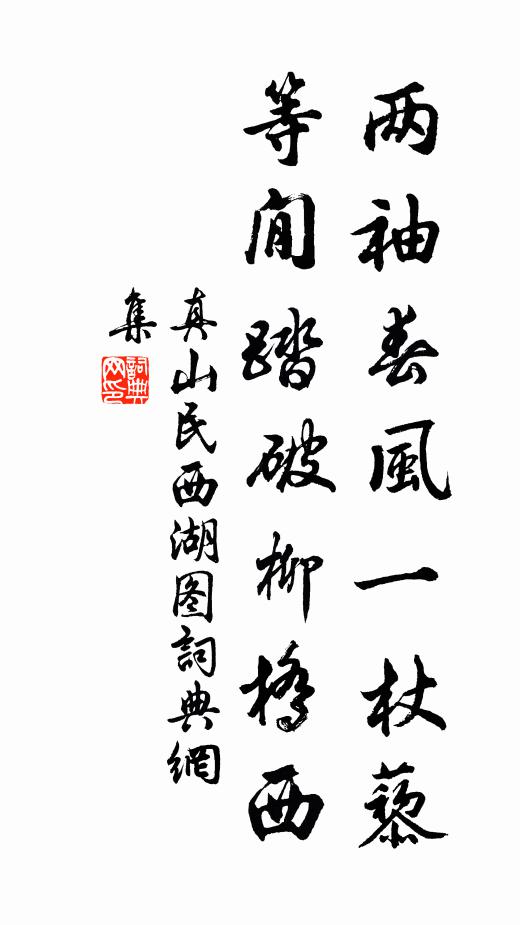 两袖春風一杖藜
等閒踏破柳橋西
真山民西湖图詞典網
集
詞典網印